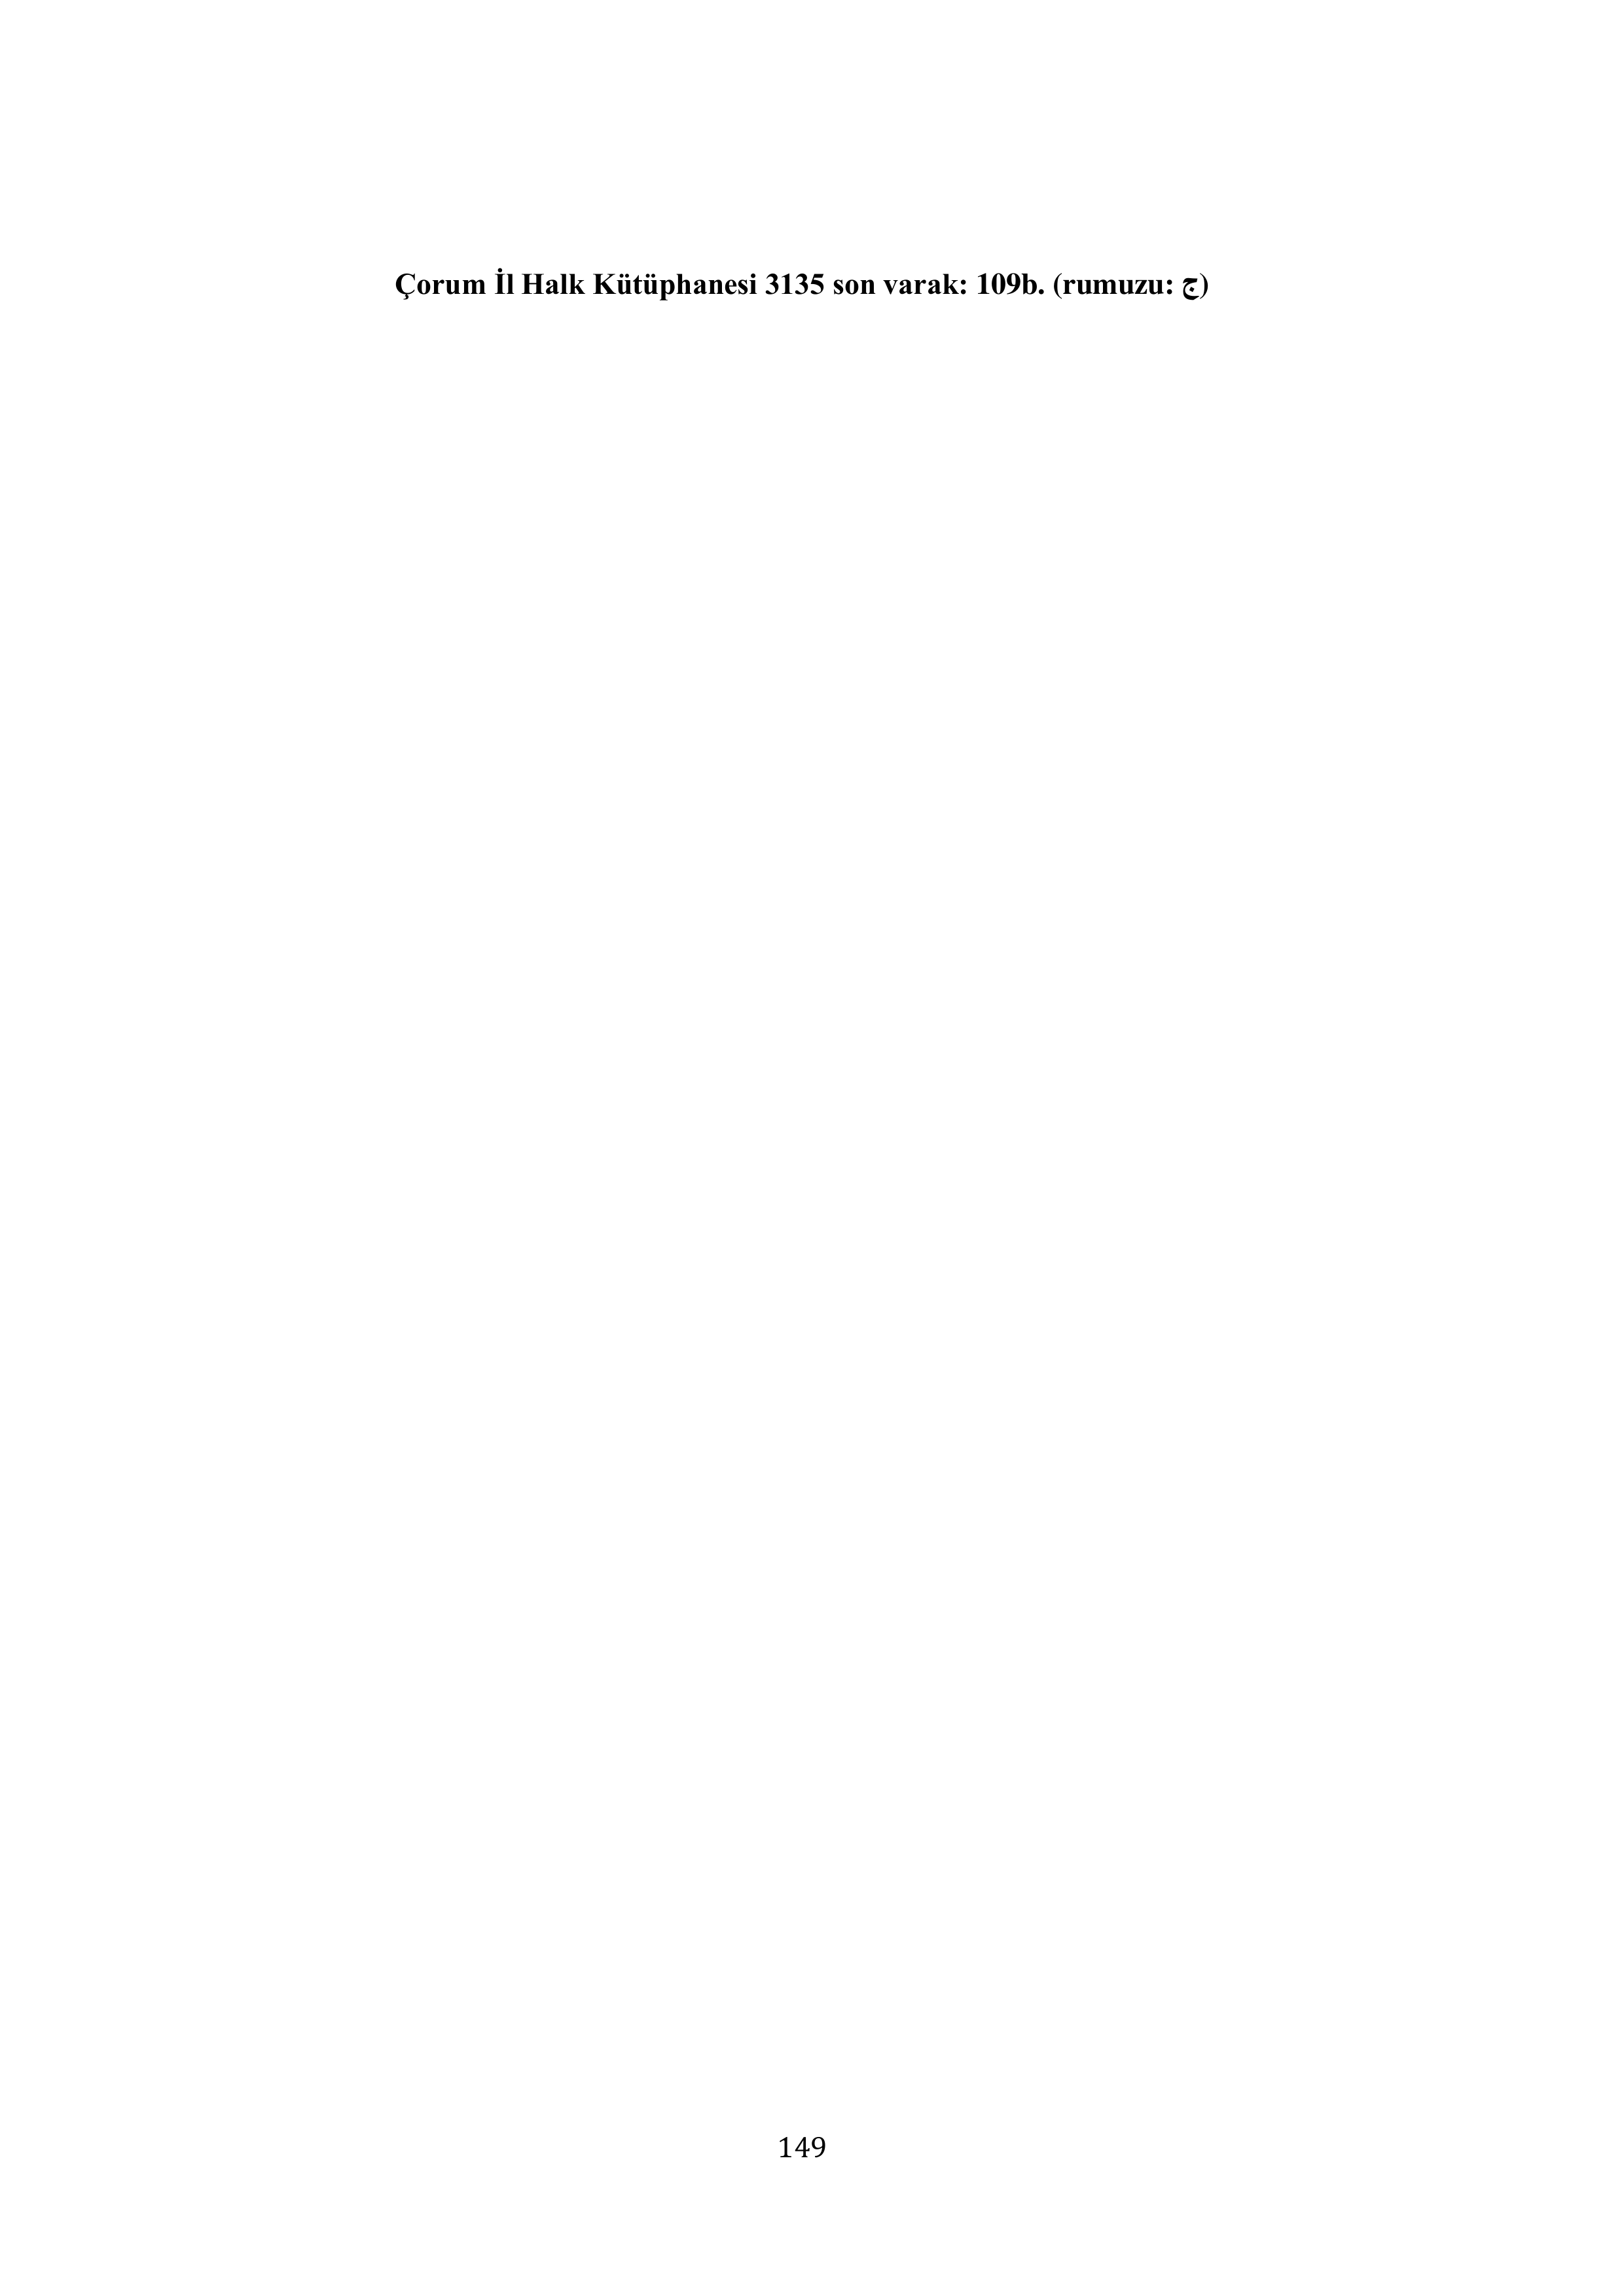 Çorum İl Halk Kütüphanesi 3135 son varak: 109b. (rumuzu: ج)
149